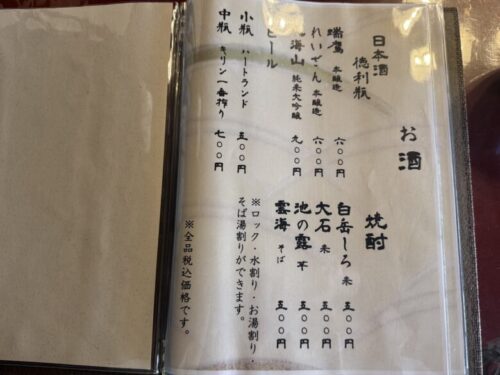 お酒
日本酒
徳利瓶
瑞鷹 本醸造 六〇〇円
れいざん 本醸造 六〇〇円
海山 純米大吟醸 九〇〇円
ビール
小瓶 ハートランド 五〇〇円
中瓶 キリン一番搾り 七〇〇円
焼酎
白岳しろ 米 五〇〇円
大石 米 五〇〇円
池の露 芋 五〇〇円
雲海 そば 五〇〇円
※ロック・水割り・お湯割り・
そば湯割りができます。
※全品税込価格です。